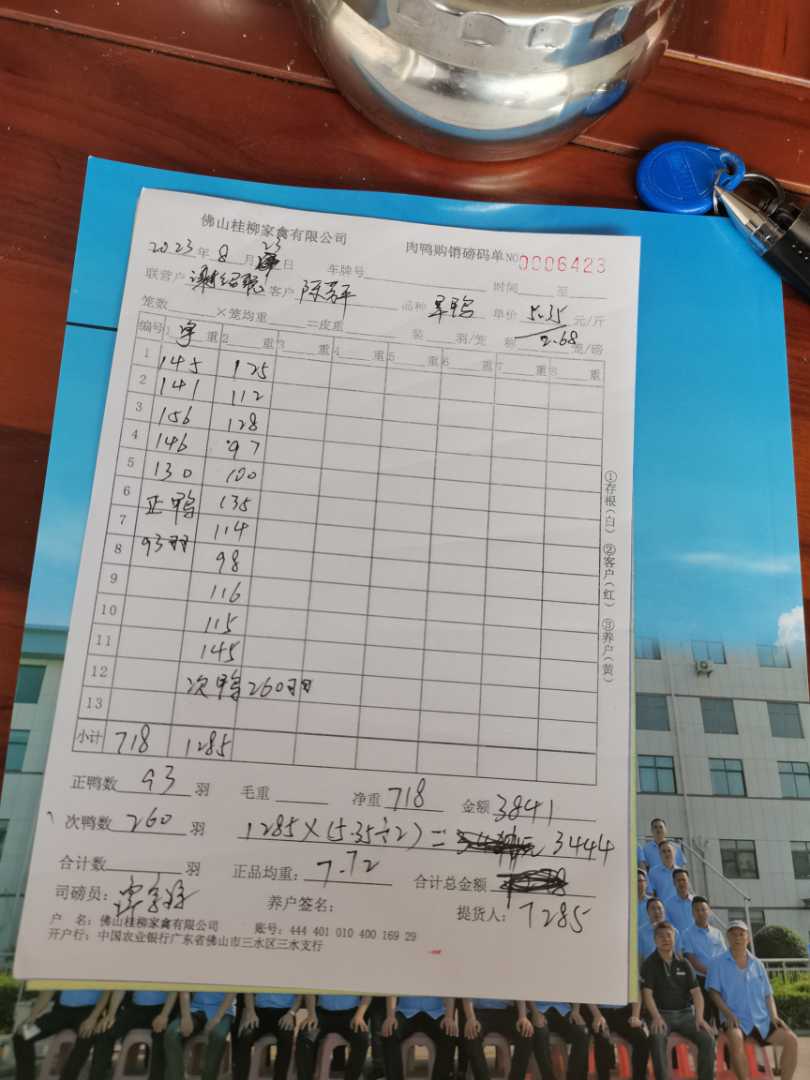 佛山桂柳家禽有限公司 肉鸭购销磅码单 NO 0006423
2023年8月23日 车牌号 时间 至
联营户 客户 陈 平 品种 单价 5.35 元/斤
笼数 ×笼均重 =皮重 装 羽/笼 额 2.68 笼/磅
编号 1 重 2 重 3 重 4 重 5 重 6 重 7 重 8 重
1 145 125
2 141 112
3 156 128
4 146 97
5 130 100
6 正鸭 135
7 114
8 93羽 98
9 116
10 115
11 145
12 次鸭260羽
13
小计 718 1285
正鸭数 93 羽 毛重 净重 718 金额 3841
次鸭数 260 羽 1285×(5.35÷2)= 3444
合计数 羽 正品均重: 7.72 合计总金额
司磅员: 养户签名: 提货人: 7285
户 名: 佛山桂柳家禽有限公司 账号: 444 401 010 400 169 29
开户行: 中国农业银行广东省佛山市三水区三水支行
①存根(白) ②客户(红) ③养户(黄)